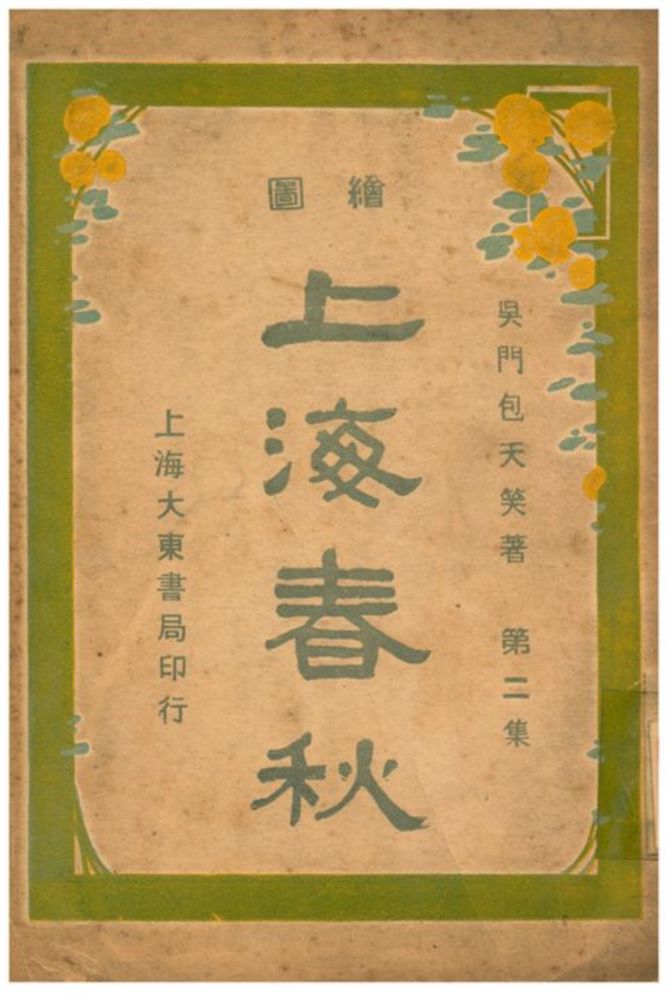 繪圖
吳門包天笑著 第二集
上海春秋
上海大東書局印行